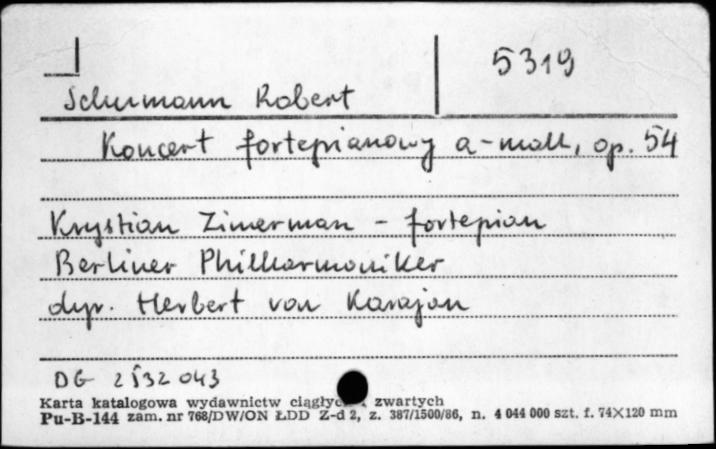 5319
Schumann Robert
Koncert fortepianowy a-moll, op. 54
Krystian Zimerman - fortepian
Berliner Philharmoniker
dyr. Herbert von Karajan
DG 2532 043
Karta katalogowa wydawnictw ciągłych zwartych
Pu-B-144 zam. nr 768/DW/ON ŁDD Z-d 2, z. 387/1500/86, n. 4 044 000 szt. f. 74×120 mm